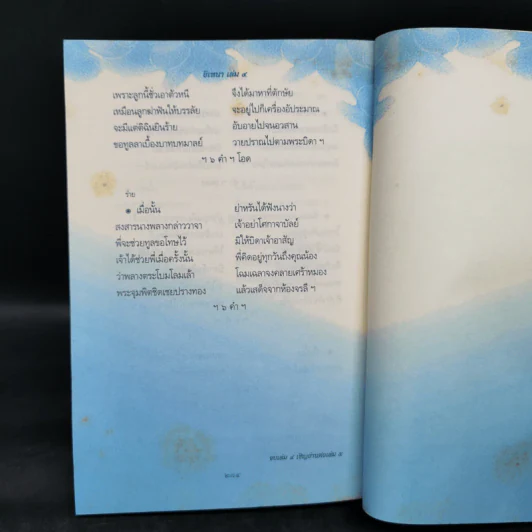 อิเหนา เล่ม ๔
เพราะลูกนี้ชั่วเอาตัวหนี จึงได้มาหาที่ตักษัย
เหมือนลูกฆ่าฟันให้บรรลัย จะอยู่ไปก็เครื่องอัประมาณ
จะมีแต่ติฉินยินร้าย อับอายไปจนอวสาน
ขอทูลลาเบื้องบาทบทมาลย์ วายปราณไปตามพระบิดา ฯ
ฯ ๖ คำ ฯ โอด
ร่าย
๏ เมื่อนั้น ย่าหรันได้ฟังนางว่า
สงสารนางพลางกล่าววาจา เจ้าอย่าโศกาจาบัลย์
พี่จะช่วยทูลขอโทษไว้ มิให้บิดาเจ้าอาสัญ
เจ้าได้ช่วยพี่เมื่อครั้งนั้น พี่คิดอยู่ทุกวันถึงคุณน้อง
ว่าพลางตระโบมโลมเล้า โฉมเฉลาจงคลายเศร้าหมอง
พระจุมพิตชิดเชยปรางทอง แล้วเสด็จจากห้องจรลี ฯ
ฯ ๖ คำ ฯ
จบเล่ม ๔ เชิญอ่านต่อเล่ม ๕